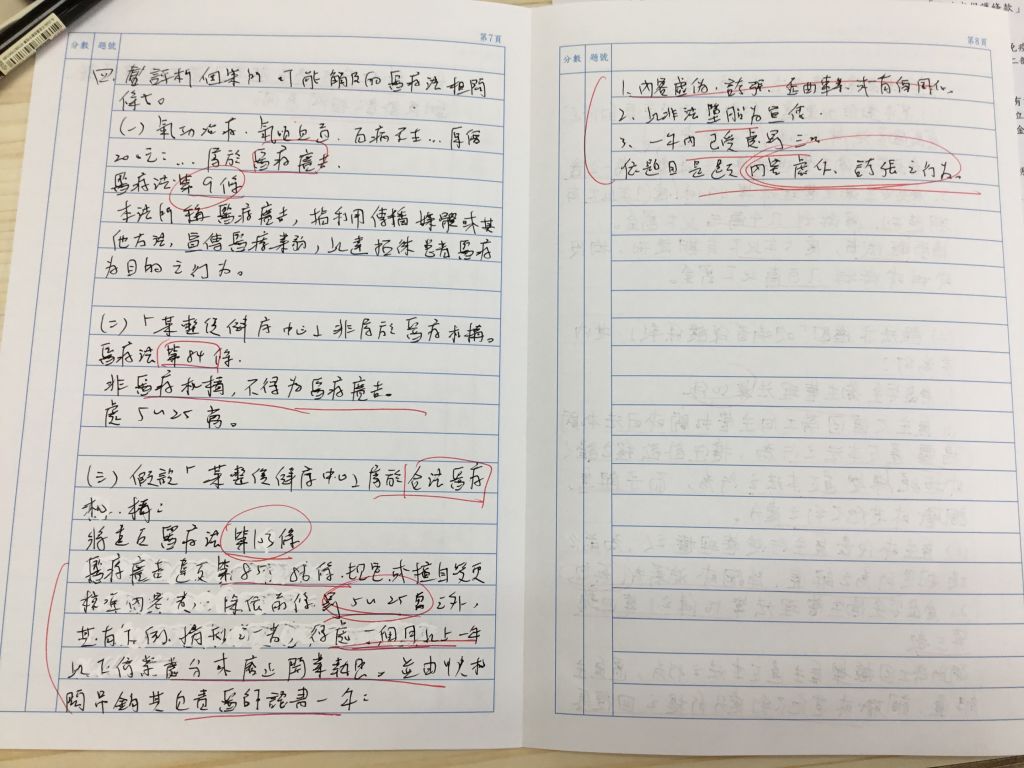 第7頁
分數 題號
四 嘗評析個案所可能觸及的醫療法相關
條文。
(一) 氣功治病、氣順血昌、百病不生…原價
200元:…屬於醫療廣告.
醫療法第9條
本法所稱醫療廣告,指利用傳播媒體或其
他方法,宣傳醫療業務,以達招徠患者醫療
為目的之行為。
(二)「某整復健康中心」非屬於醫療機構。
醫療法第84條.
非醫療機構,不得為醫療廣告。
處5~25萬。
(三) 假設「某整復健康中心」屬於合法醫療
機構:
將違反醫療法第103條
醫療廣告違反第85、86條規定或擅自變更
核准內容者,除依前條罰5~25萬之外,
其有下例情形之一者,得處一個月以上一年
以下停業處分或廢止開業執照。並由中央機
關吊銷其負責醫師證書一年:
第8頁
分數 題號
1、內容虛偽、誇張、歪曲事實、或有傷風化。
2、以非法墮胎為宣傳.
3、一年內已受處罰三次
依題目是違反內容虛偽、誇張之行為。